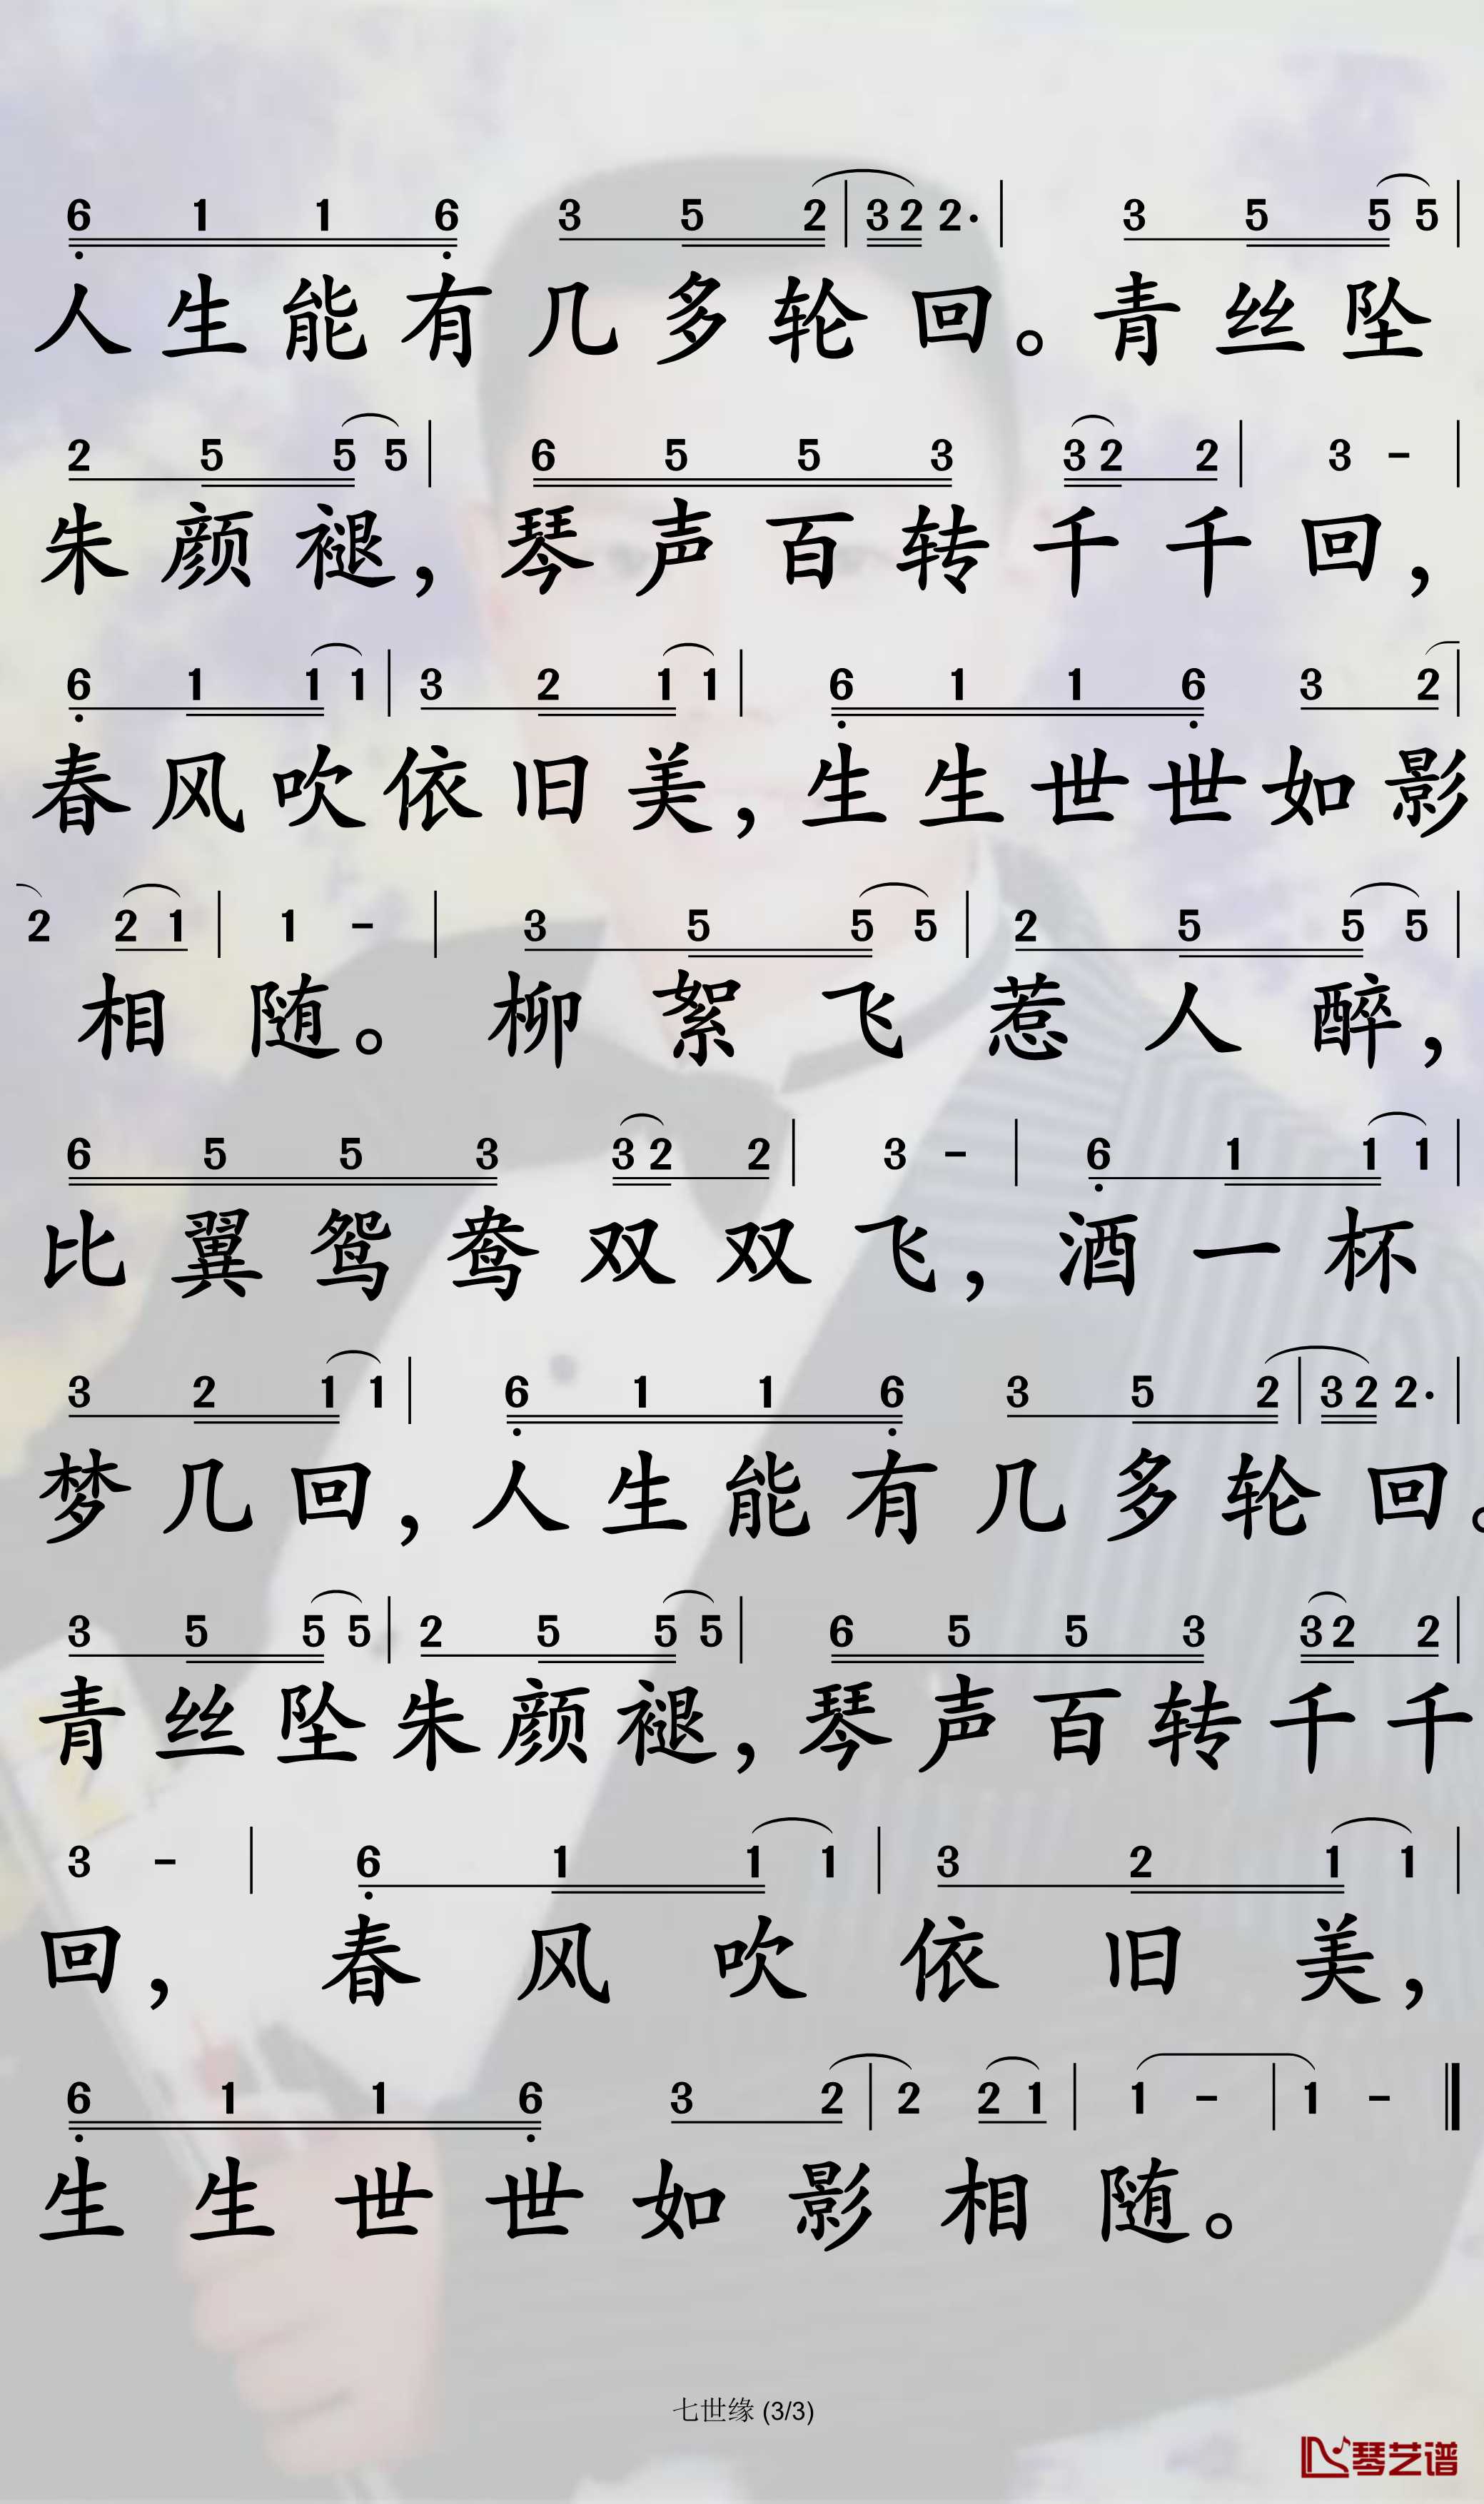 6 1 1 6 3 5 2 | 3 2 2· | 3 5 5 5 |
人生能有几多轮回。青丝坠
2 5 5 5 | 6 5 5 3 3 2 2 | 3 - |
朱颜褪，琴声百转千千回，
6 1 1 1 | 3 2 1 1 | 6 1 1 6 3 2 |
春风吹依旧美，生生世世如影
2 2 1 | 1 - | 3 5 5 5 | 2 5 5 5 |
相随。柳絮飞惹人醉，
6 5 5 3 3 2 2 | 3 - | 6 1 1 1 |
比翼鸳鸯双双飞，酒一杯
3 2 1 1 | 6 1 1 6 3 5 2 | 3 2 2· |
梦几回，人生能有几多轮回。
3 5 5 5 | 2 5 5 5 | 6 5 5 3 3 2 2 |
青丝坠朱颜褪，琴声百转千千
3 - | 6 1 1 1 | 3 2 1 1 |
回，春风吹依旧美，
6 1 1 6 3 2 | 2 2 1 | 1 - | 1 - ‖
生生世世如影相随。
七世缘 (3/3)
琴艺谱